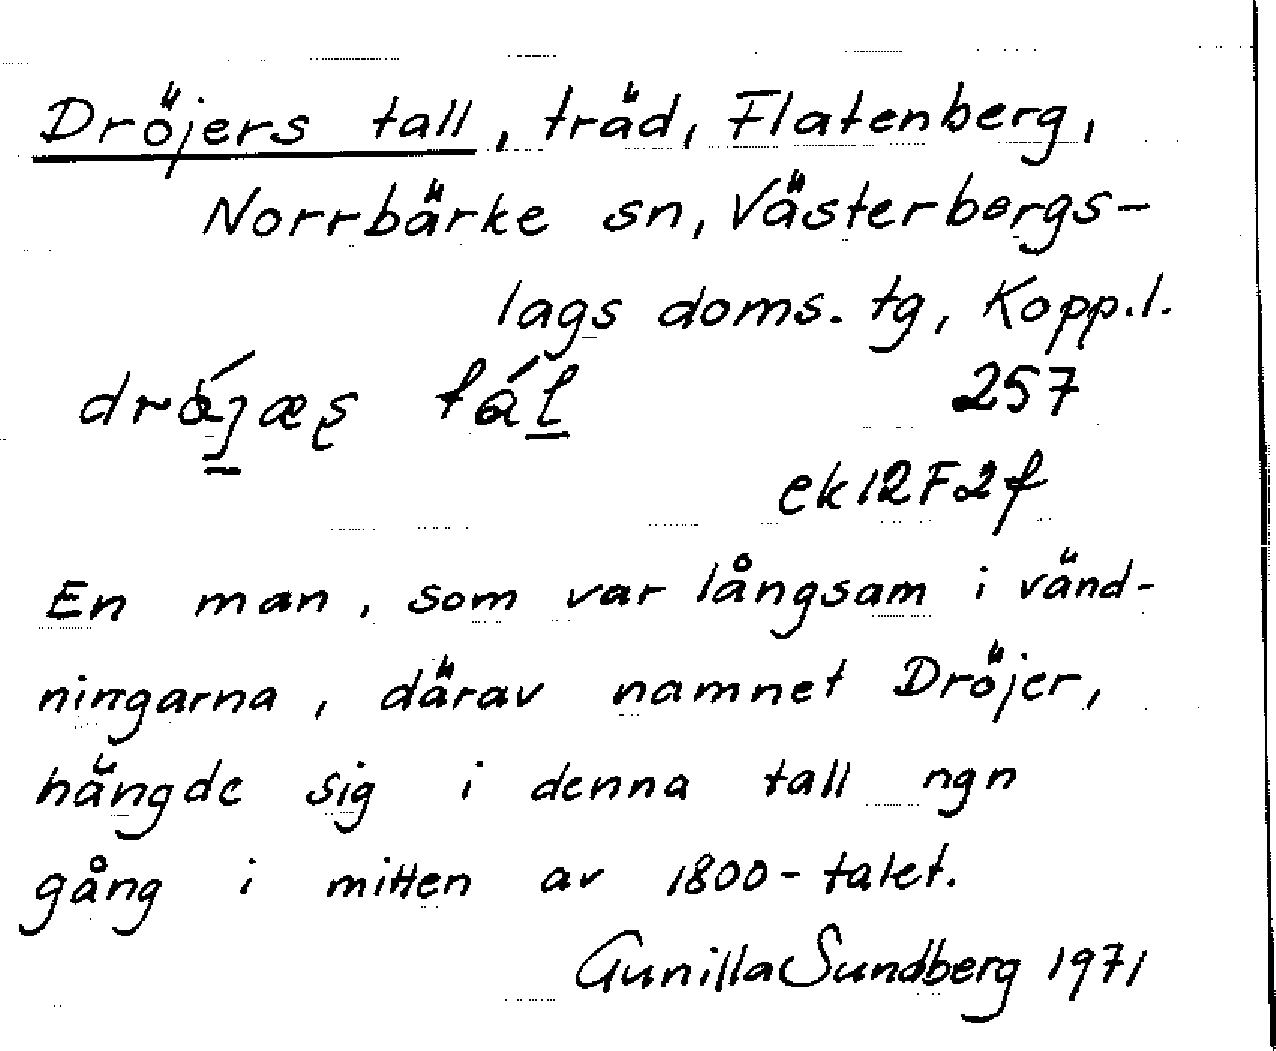 Dröjers tall, träd, Flatenberg,
Norrbärke sn, Västerbergs-
lags doms. tg, Kopp.l.
257
ek 12F2f
En man, som var långsam i vänd-
ningarna, därav namnet Dröjer,
hängde sig i denna tall ngn
gång i mitten av 1800-talet.
Gunilla Sundberg 1971